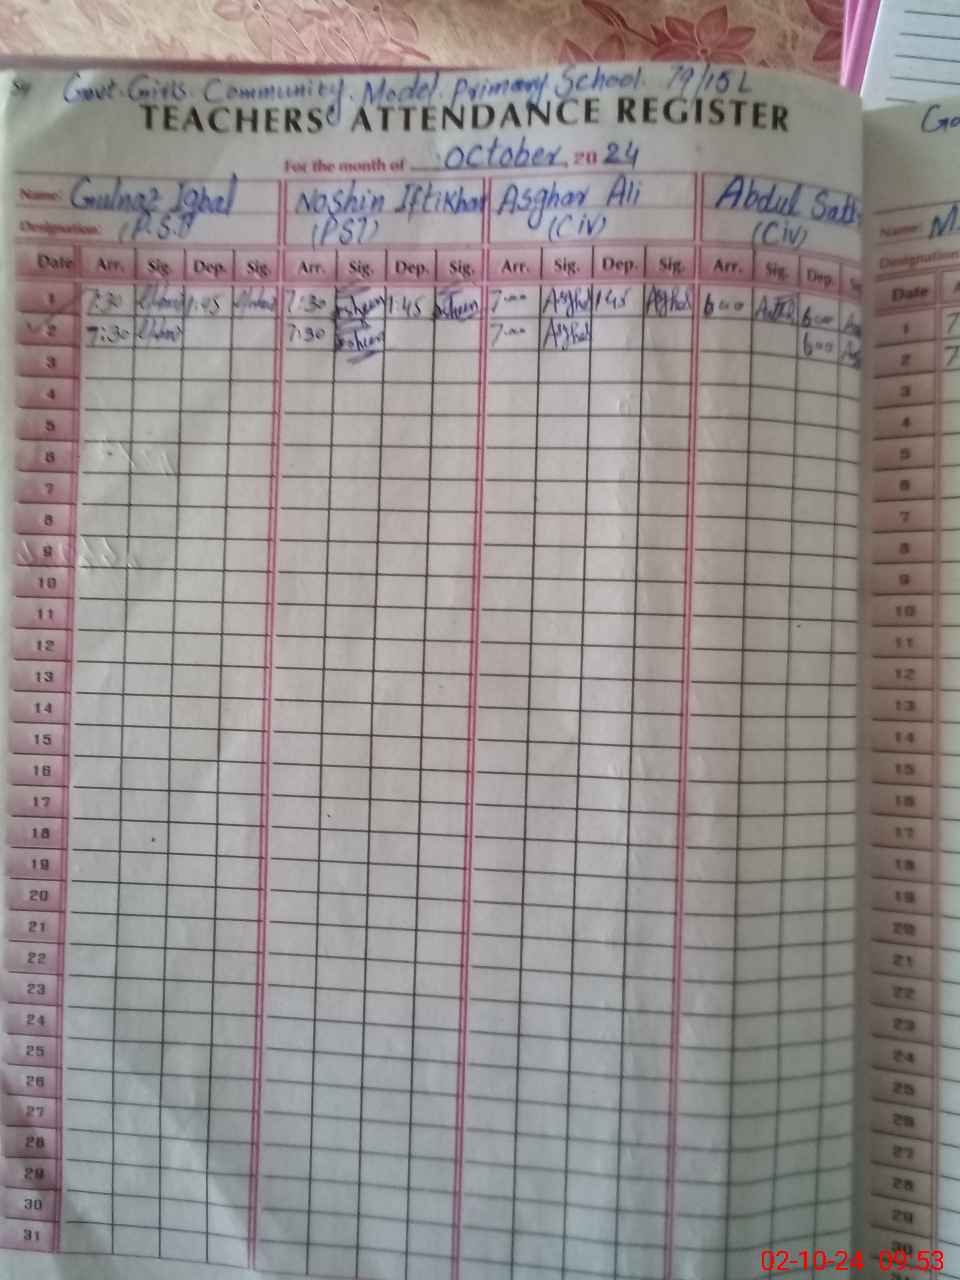 Govt. Girls. Community. Model. Primary School. 79/15L
TEACHERS' ATTENDANCE REGISTER
For the month of October 2024
Name: Gulnaz Iqbal Noshin Iftikhar Asghar Ali Abdul
Designation: (P.S.T) (PST) (Civ) (Civ)
Date Arr. Sig. Dep. Sig. Arr. Sig. Dep. Sig. Arr. Sig. Dep. Sig. Arr. Sig. Dep.
1 7:30 1:45 7:30 1:45 7:00 Asghar 1:45 Asghar 6:00 6:00
2 7:30 7:30 7:00 Asghar 6:00
3
4
5
6
7
8
9
10
11
12
13
14
15
16
17
18
19
20
21
22
23
24
25
26
27
28
29
30
31
Name: M.
Designation
Date
1 7
2 7
3
4
5
6
7
8
9
10
11
12
13
14
15
16
17
18
19
20
21
22
23
24
25
26
27
28
29
30
02-10-24 09:53